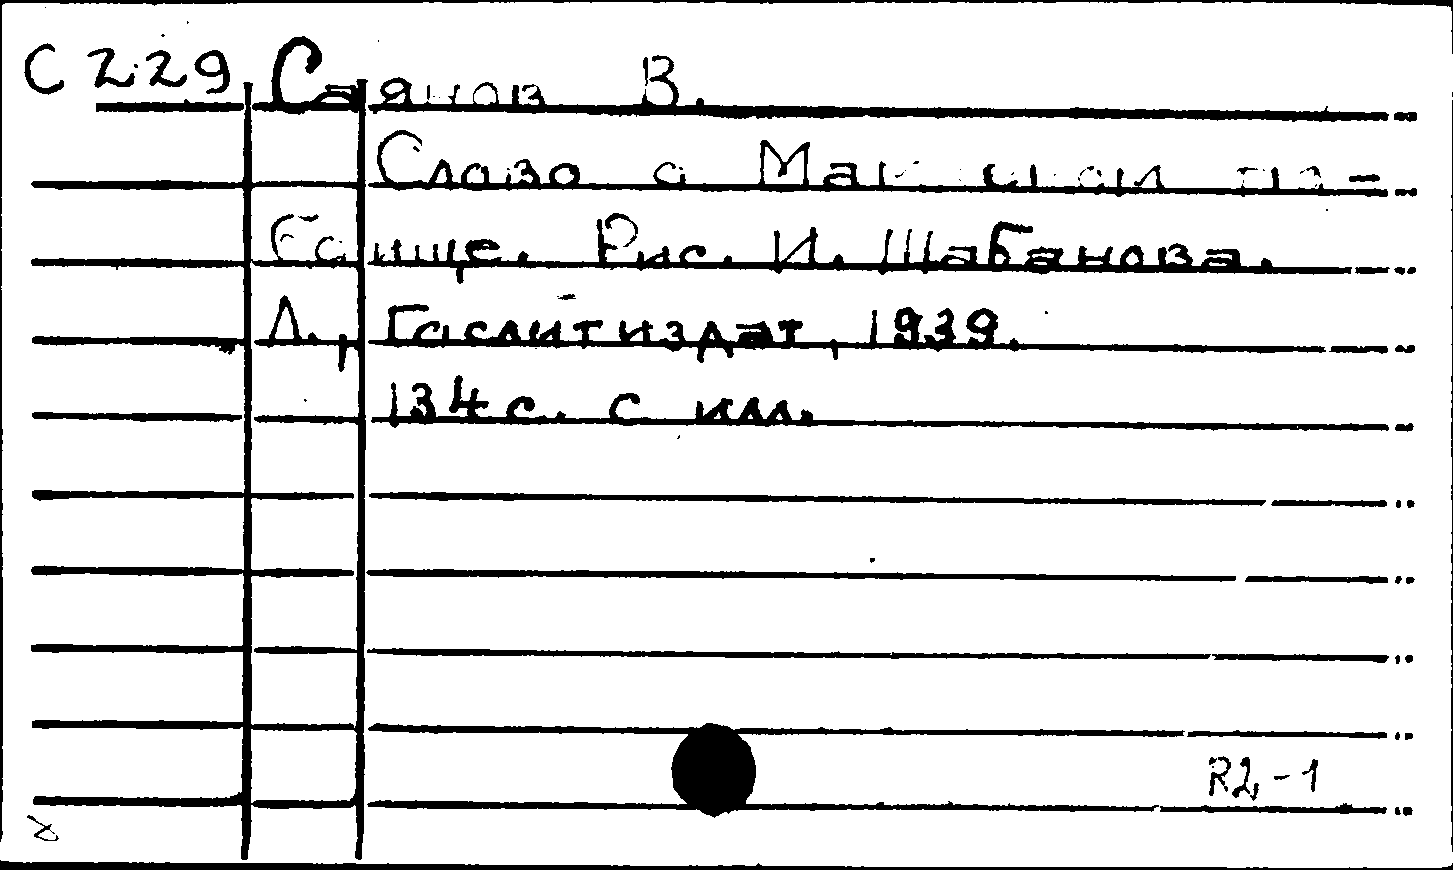 С 229 Саянов В.
Слово о Мамаевом по-
боище. Рис. И. Шабанова.
Л., Гослитиздат, 1939.
134 с. с илл.
R2-1